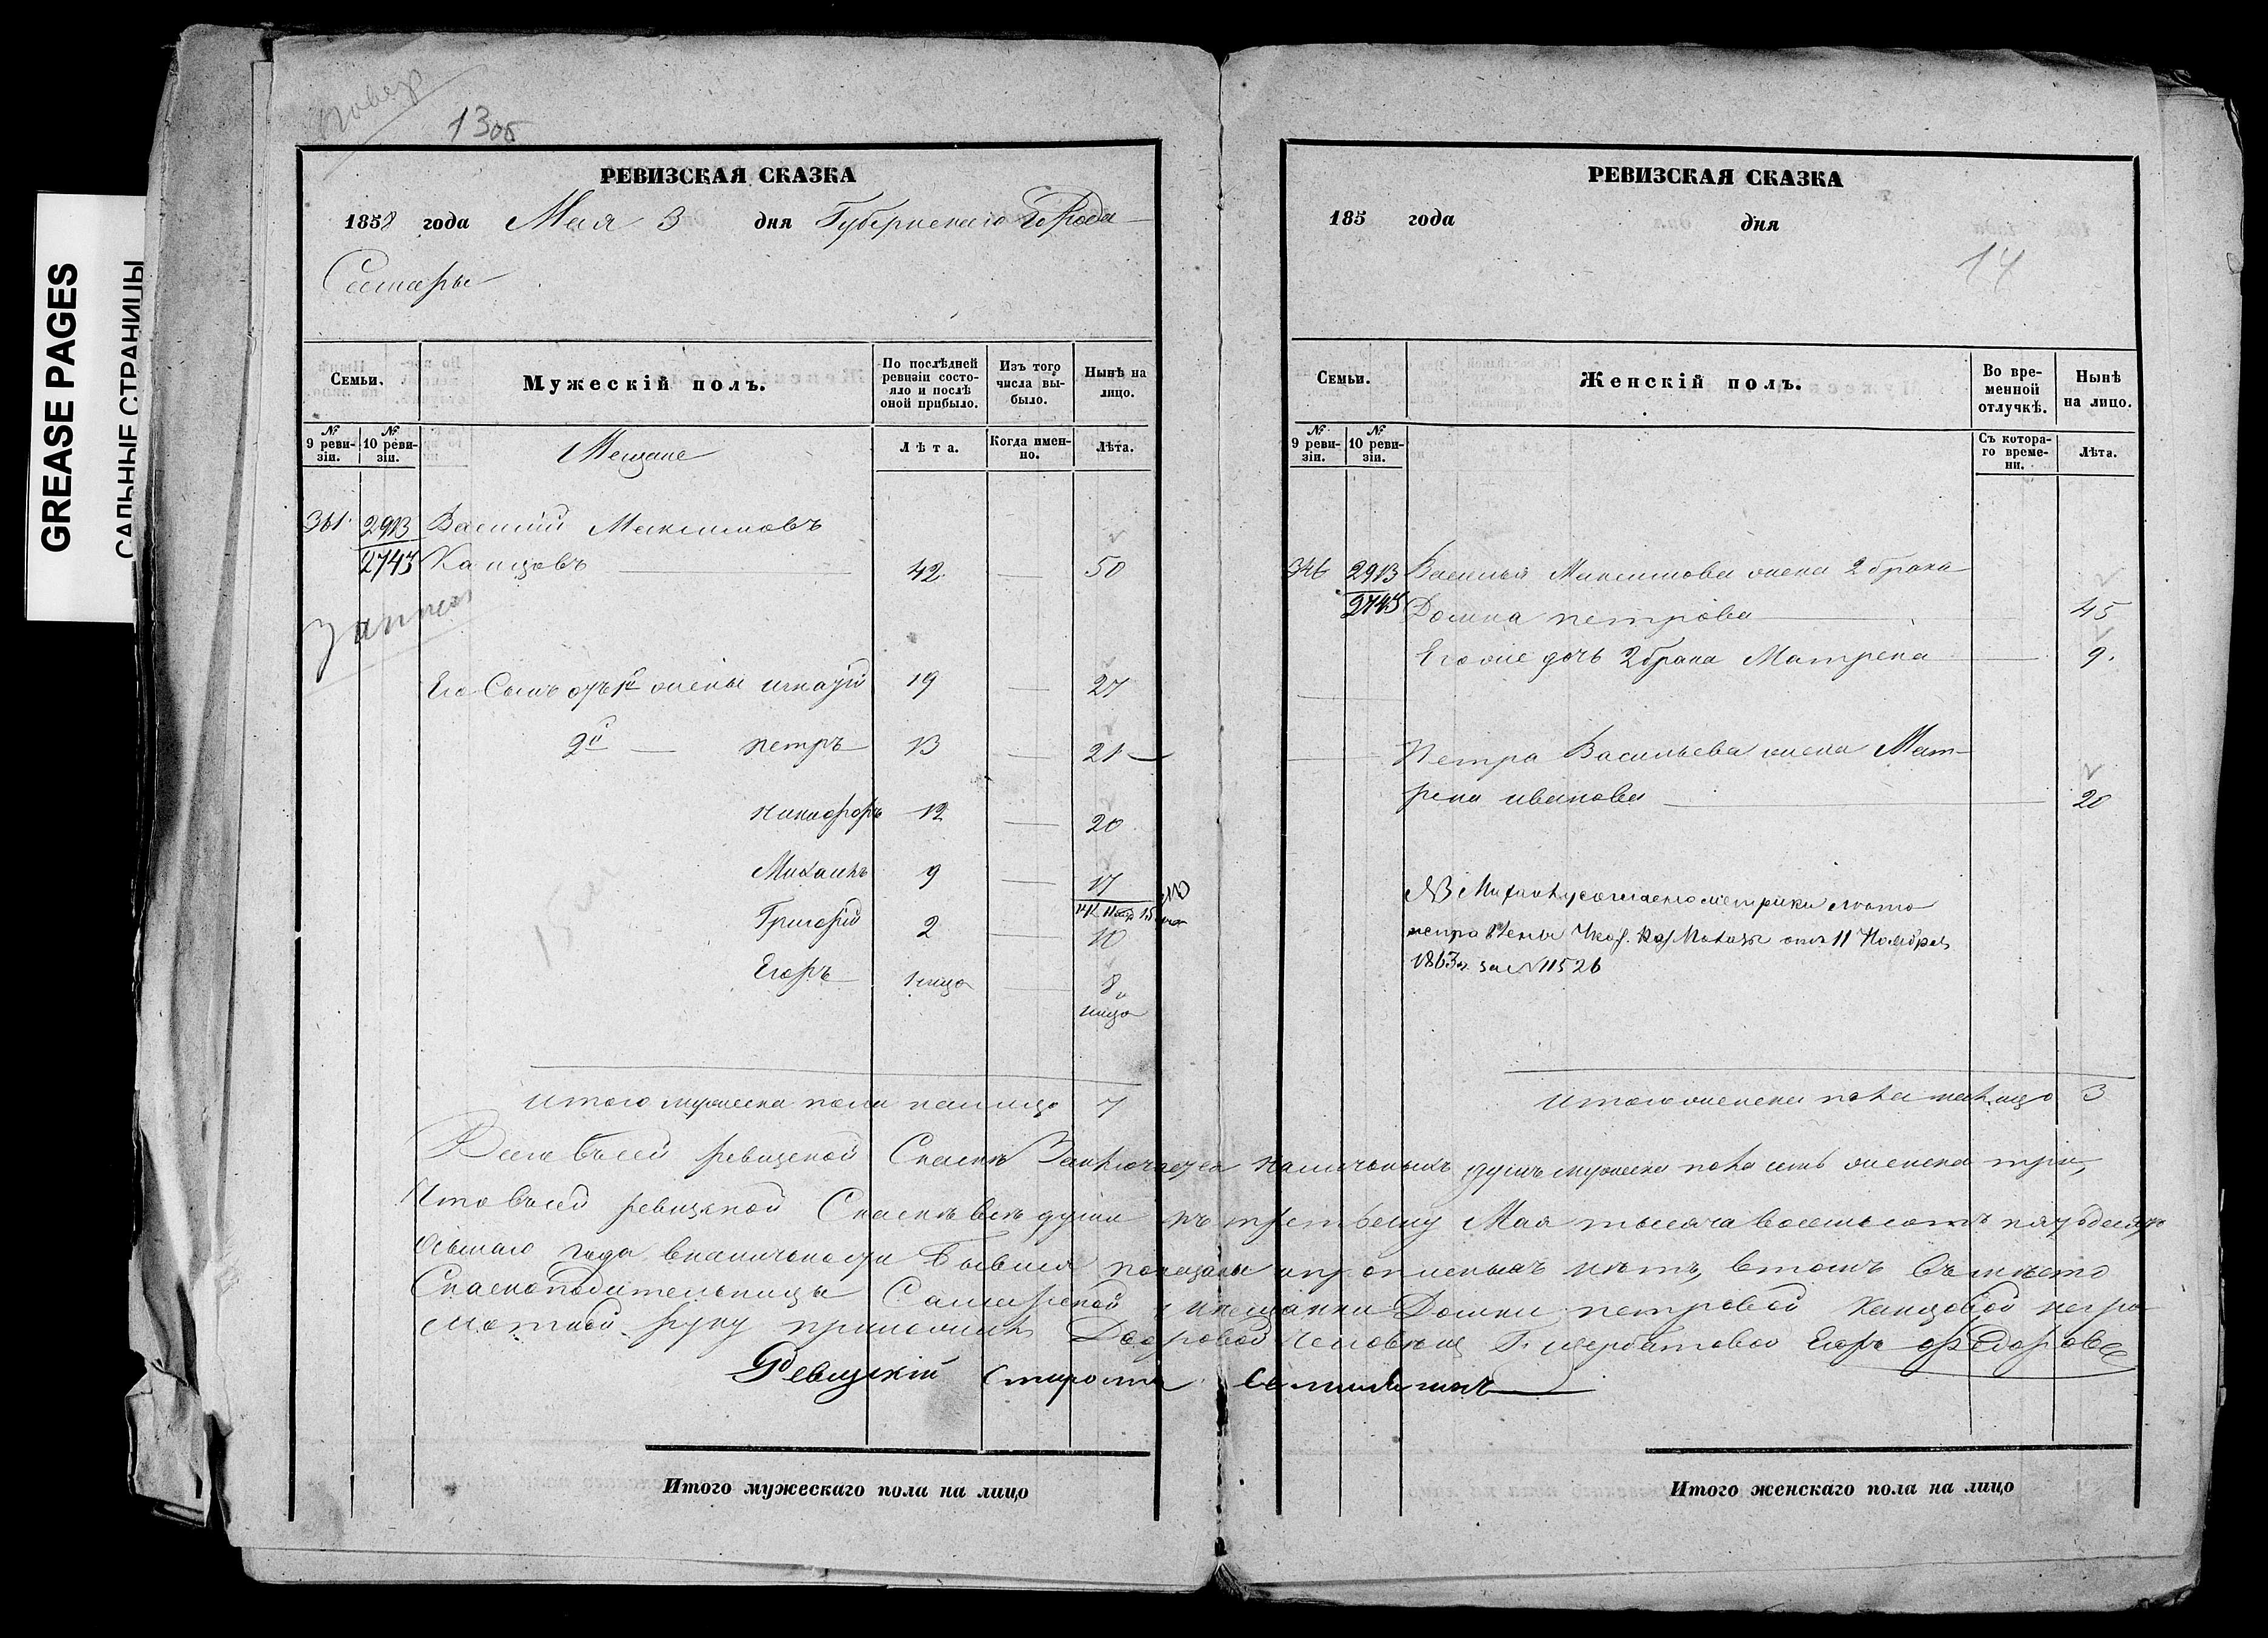 GREASE PAGES
САЛЬНЫЕ СТРАНИЦЫ
13 об
РЕВИЗСКАЯ СКАЗКА
1858 года Мая 3 дня Губернскаго Города
Самары
Семьи.
Мужескій полъ.
По послѣдней ревизіи состояло и послѣ оной прибыло.
Изъ того числа выбыло.
Нынѣ на лицо.
№ 9 ревизіи.
№ 10 ревизіи.
Мещане
Лѣта.
Когда именно.
Лѣта.
361 2913 Василий Максимовъ
2745 Канцовъ 42 50
Его Сынъ отъ 1й жены 19 27
2й петръ 13 21
никифоръ 12 20
Михаилъ 9 17
Григорій 2 10
Егоръ 8
лицо
итого мужеска пола налицо 7
РЕВИЗСКАЯ СКАЗКА
185 года дня
14
Семьи.
Женскій полъ.
Во временной отлучкѣ.
Нынѣ на лицо.
№ 9 ревизіи.
№ 10 ревизіи.
Съ котораго времени.
Лѣта.
346 2913 Василья Максимова жена 2 брака
2745 Домна петрова 45
Его же дочь 2 брака Матрена 9
Петра Васильева жена Мат-
рена иванова 20
NB Михаилу согласно метрики
Каз. Палаты отъ 11 Ноября
1863 г. за № 11526
Итого женска пола налицо 3
Всего въ сей ревизской Сказкѣ Заключается наличныхъ душъ мужеска пола семь женска три,
Что въ сей ревизской Сказкѣ всѣ души къ третьему Мая тысяча восемьсотъ пятьдесятъ
осьмаго года въ наличности бывшія показаны и прописныхъ нѣтъ, в томъ въ мѣсто
Сказкоподательницы Самарской мещанки Домны петровой Канцовой негра-
мотной руку приложилъ Дворовой человѣкъ Г. Щербатовой Егоръ Федоровъ
Ревизскій Староста
Итого мужескаго пола на лицо
Итого женскаго пола на лицо